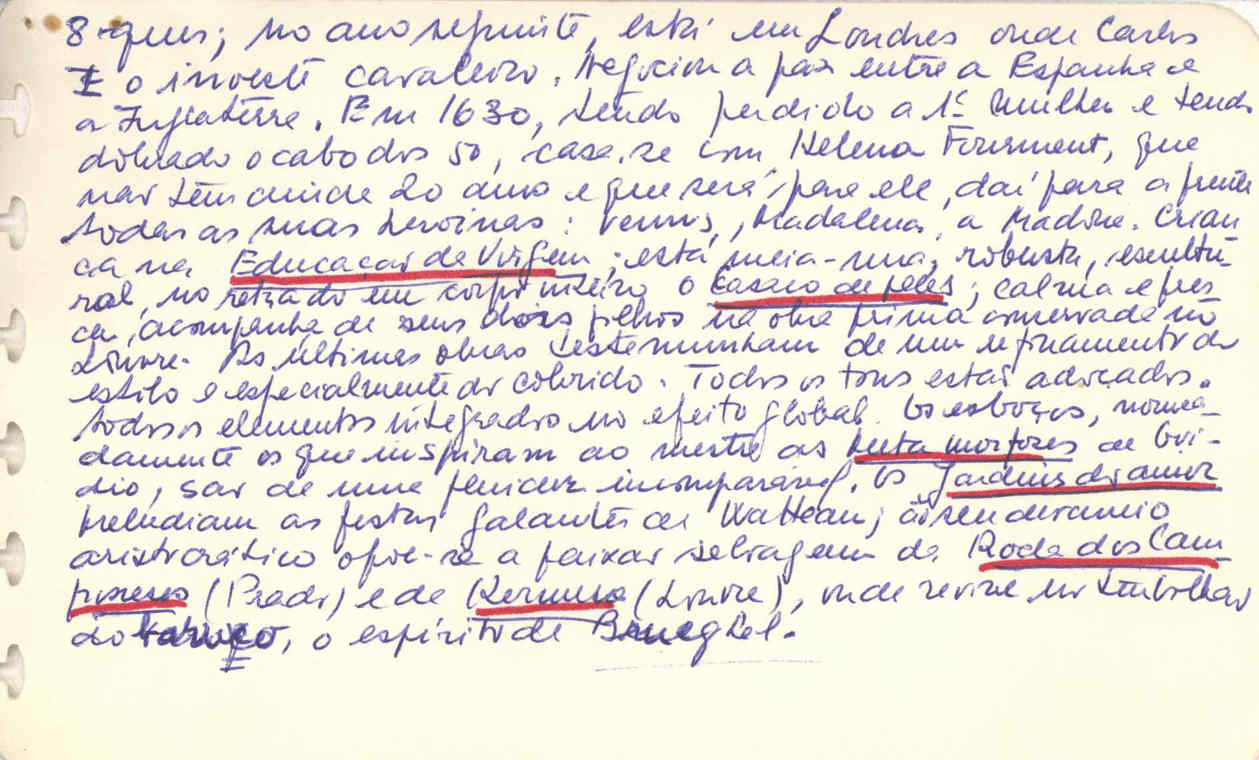 8 ques; no ano seguinte, está em Londres onde Carlos
I o investe cavaleiro. Negocion a paz entre a Espanha e
a Inglaterra. Em 1630, tendo perdido a 1ª mulher e tendo
dobrado o cabo dos 50, casa-se com Helena Fourment, que
não tem ainda 20 anos e que será, para ele, daí para a frente
todas as suas heroinas: Venus, Madalena, a Madona. Crian
ça na Educação da Virgem; está meia-nua, robusta, escultu-
ral, no retrado em corpo inteiro o Casaco de peles; calma e fres
ca, acompanha de seus dois filhos na obra prima conservada no
Louvre. As últimas obras testemunham de um refinamento do
estilo e especialmente do colorido. Todos os tons estão adoçados.
todos os elementos integrados no efeito global. Os esboços, nomea-
damente os que inspiram ao mestre as Metamorfoses de Ovi-
dio, são de uma fluidez incomparável. Os Jardins do amor
preludiam as festas galantes de Watteau; ao seu devaneio
aristocrático opoe-se a paixão selvagem da Roda dos Cam
poneses (Prado) e da Kermesse (Louvre), onde revive no turbilhão
do, o espírito de Brueghel.